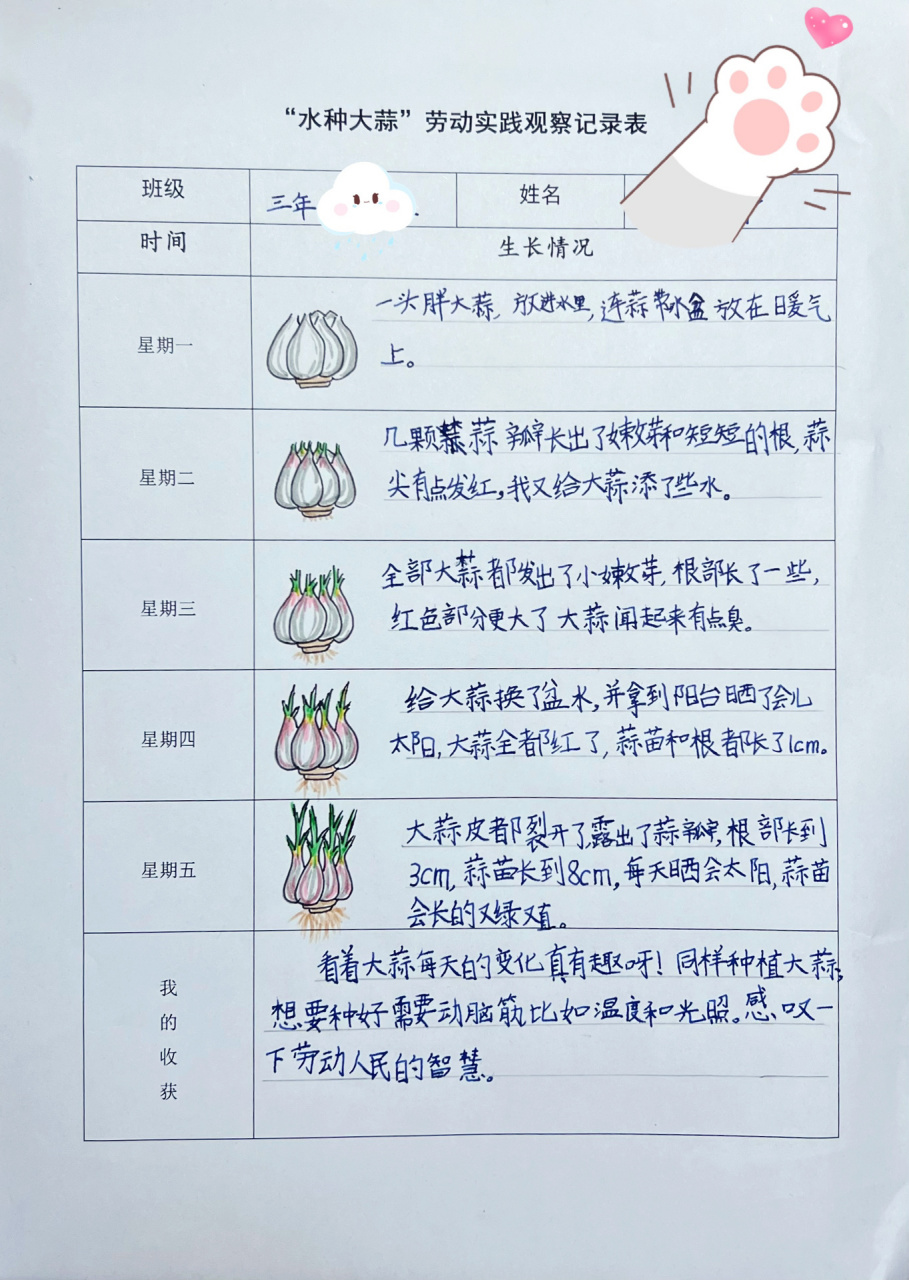 “水种大蒜”劳动实践观察记录表
班级 三年 姓名
时间 生长情况
星期一
一头胖大蒜，放进水里，连蒜带水盆放在日暖气
上。
星期二
几颗蒜瓣长出了嫩芽和短短的根，蒜
尖有点发红，我又给大蒜添了些水。
星期三
全部大蒜都发出了小嫩芽，根部长了一些，
红色部分更大了大蒜闻起来有点臭。
星期四
给大蒜换了盆水，并拿到阳台晒了会儿
太阳，大蒜全都红了，蒜苗和根都长了1cm。
星期五
大蒜皮都裂开了，露出了蒜瓣，根部长到
3cm，蒜苗长到8cm，每天晒会太阳，蒜苗
会长的又绿又直。
我的收获
看着大蒜每天的变化真有趣呀！同样种植大蒜，
想要种好需要动脑筋比如温度和光照。感叹一
下劳动人民的智慧。